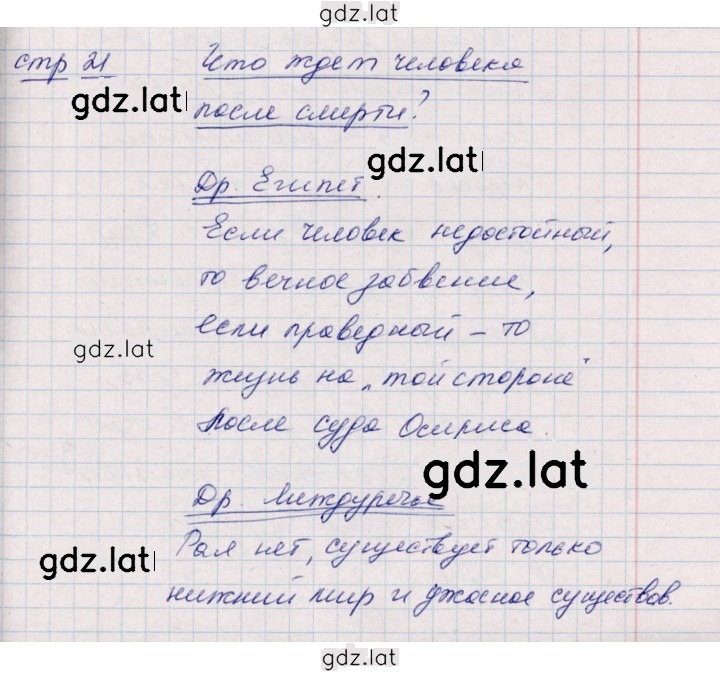 gdz.lat
стр 21 Что ждет человека
gdz.lat
после смерти?
gdz.lat
Др. Египет.
Если человек недостойный,
то вечное забвение,
если праведный – то
gdz.lat
жизнь на „той стороне"
После суда Осириса.
gdz.lat
Др. Междуречье
gdz.lat
Рая нет, существует только
нижний мир и ужасное существов.
gdz.lat